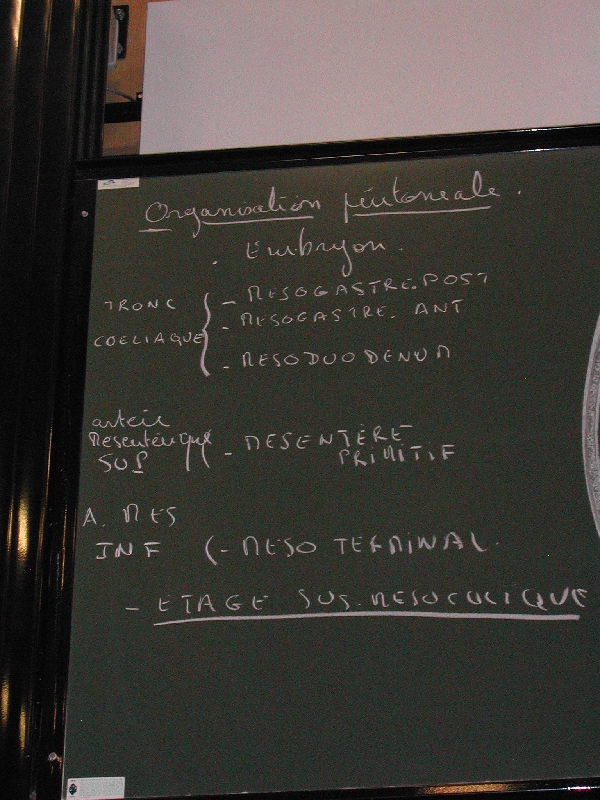 Organisation péritoneale.
. Embryon.
TRONC
COELIAQUE
- MESOGASTRE. POST
- MESOGASTRE. ANT
- MESODUODENUM
arteie
Mesenterique
SUP
- MESENTÈRE
PRIMITIF
A. MES
INF (- MESO TERMINAL.
- ETAGE SUS. MESOCOLIQUE